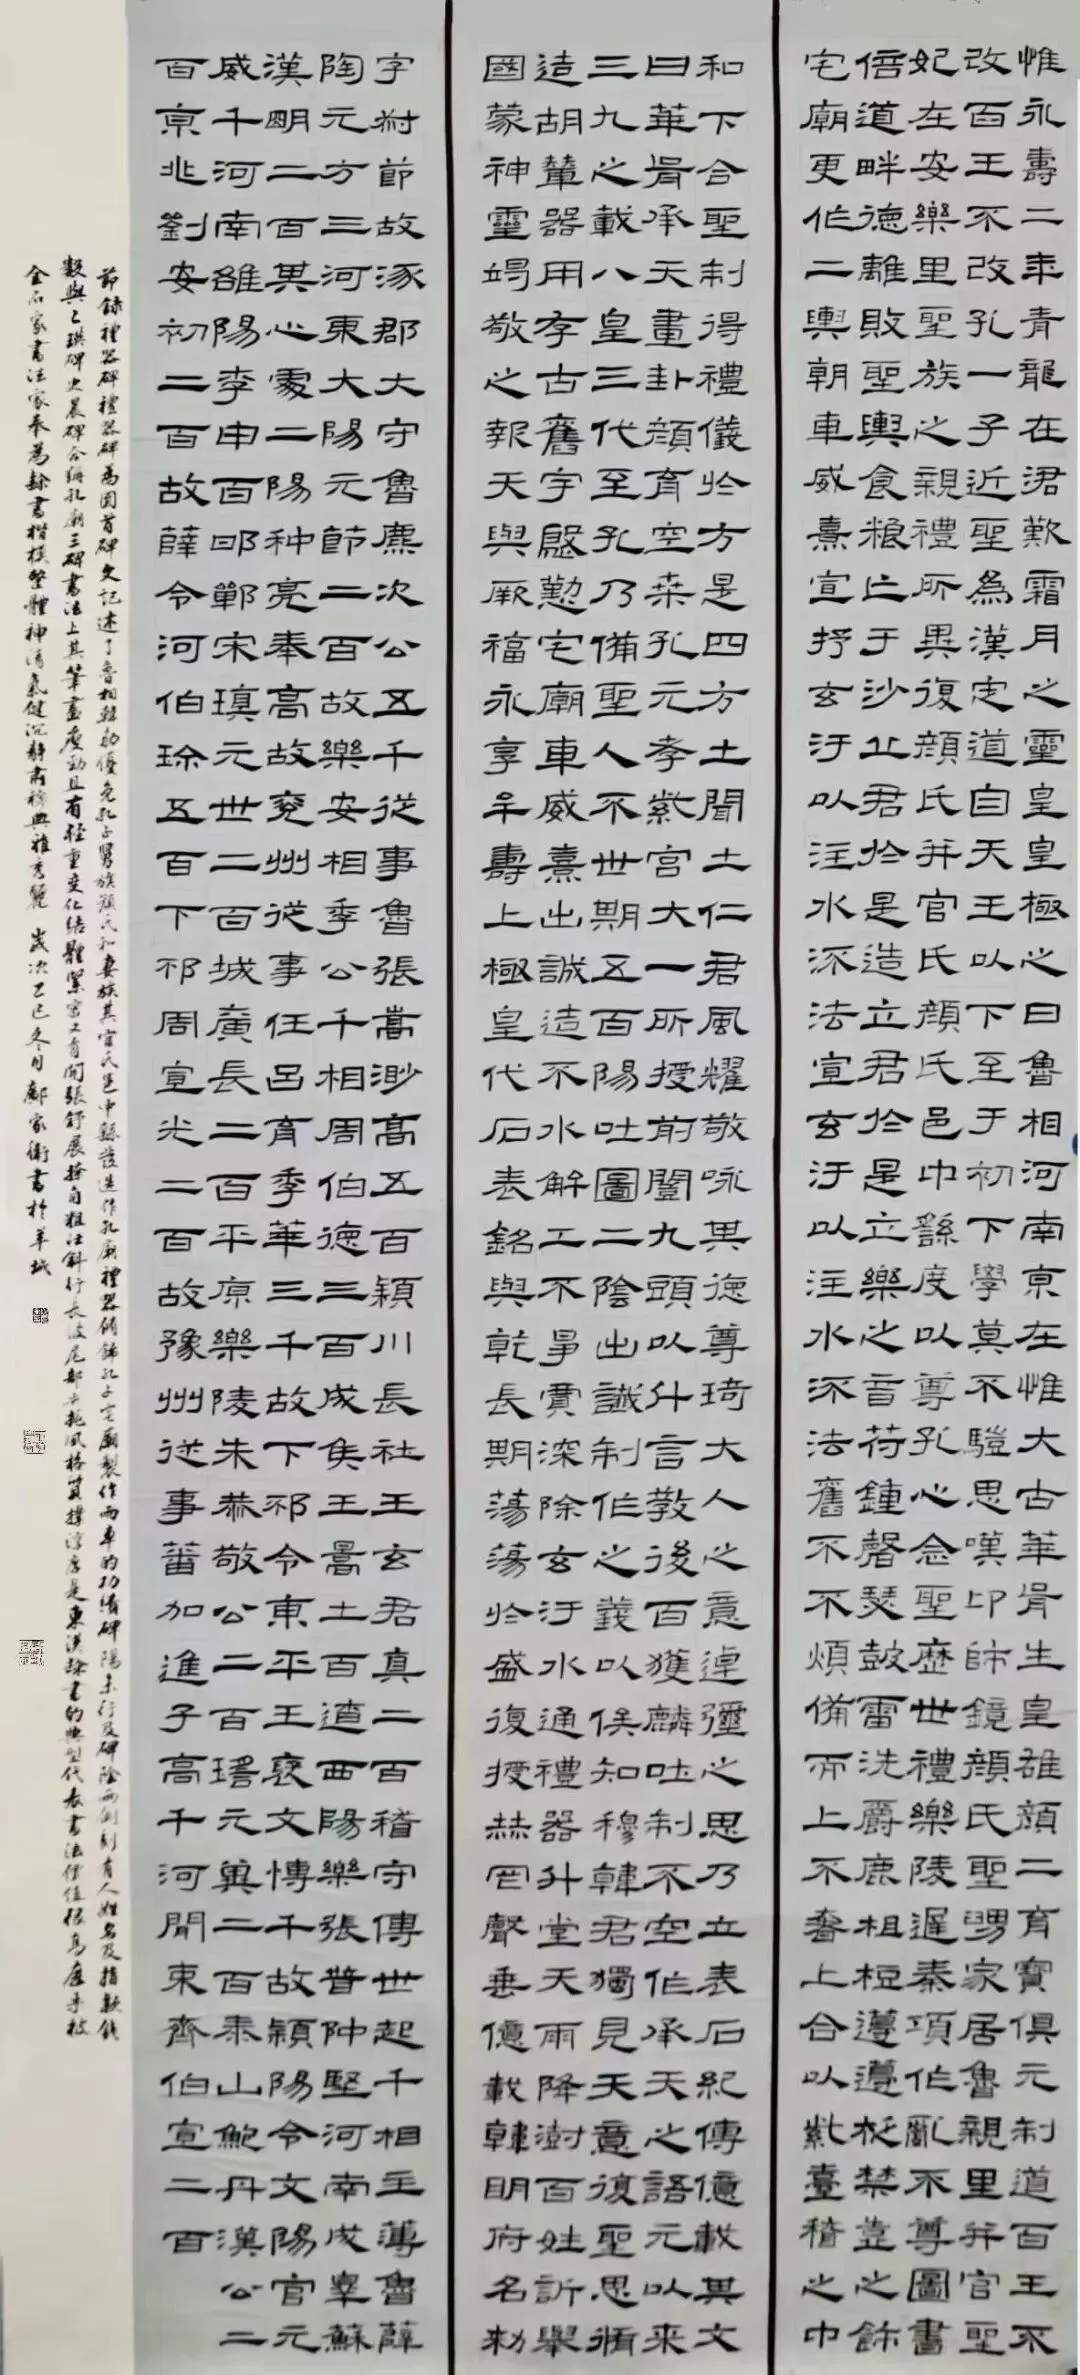 惟永壽二年青龍在涒歎霜月之靈皇皇極之日魯相河南京在惟大古華胥生皇雄顏二育寶俱元制道百王不
改百王不改孔一子近聖為漢定道自天王以下至于初下學莫不驥思嘆卬師鏡顏氏聖舅家居魯親里并官聖
妃在安樂里聖族之親禮所異復顏氏并官氏顏氏邑中繇度以尊孔心念聖歷世禮樂陵遲秦項作亂不尊圖書
倍道畔德離敗聖輿食粮亡于沙丘君於是造立君於是立樂之音符鍾磬瑟鼓雷洗爵鹿柤梪籩籩柉禁壺之飾
宅廟更作二輿朝車威熹宣抒玄汙以注水流法宣玄汙以注水流法舊不不煩備而上不奢上合以紫臺稽之中
和下合聖制得禮儀於方是四方土聞土仁君風耀敬咏其德尊琦大人之意逴彌之思乃立表石紀傳億載其文
曰華胥承天畫卦顏育空桑孔元孝紫宮大一所授前闓九頭以什言教後百獲麟吐制不空作承天之語元以來
三九之載八皇三代至孔乃備聖人不世期五百陽吐圖二陰出讖制作之義以俟知穆韓君獨見天意復聖思循
造胡輦器用存古舊宇慇懃宅廟車威熹出誠造不水解工不爭賈深除玄汙水通禮器升堂天雨降澍百姓訢舉
國蒙神靈竭敬之報天與厥福永享年壽上極皇代石表銘與乾長期蕩蕩於盛復授赫罔聲垂億載韓明府名勑
字尌節故涿郡大守魯麃次公五千從事魯張嵩眇高五百潁川長社王玄君真二百稽守傳世起千相主薄魯薛
陶元方三河東大陽元節二百故樂安相季公千相周伯德三百成隗王暠土百遒西陽樂張普仲堅河南成皋蘇
漢明二百其心處二陽种亮奉高故兗州從事任呂育季華三千故下邳令東平王褒文博千故潁陽令文陽官元
威千河南雒陽李申百邯鄲宋瑱元世二百城廣長二百平原樂陵朱恭敬公二百璠元冀二百泰山鮑丹漢公二
百京兆劉安初二百故薛令河伯珍五百下邳周宣光二百故豫州從事蕃加進子高千河間束齊伯宣二百
節錄禮器碑禮器碑為圓首碑文記述了魯相韓勑優免孔子舅族顏氏和妻族其官氏邑中繇發造作孔廟禮器修飾孔子宅廟製作兩車的功績碑陽末行及碑陰兩側刻有人姓名及捐款錢
數與乙瑛碑史晨碑合稱孔廟三碑書法上其筆畫瘦勁且有輕重變化結體緊密又有開張舒展捺角粗壯斜行長波尾部上挑風格質樸淳厚是東漢隸書的典型代表書法價值極高歷來被
金石家書法家奉為隸書楷模整體神清氣健沉靜肅穆典雅秀麗 歲次乙巳冬月鄺家衛書於羊城